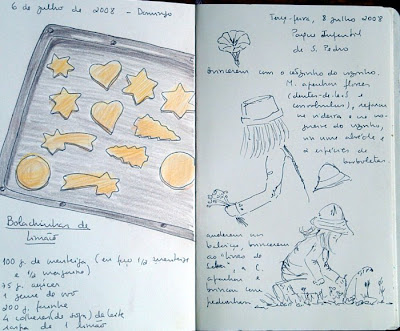 6 de julho de 2008 - Domingo
Bolachinhas de
limão
100 g. de manteiga (eu faço 1/2 manteiga
e 1/2 margarina)
75 g. açúcar
1 gema de ovo
200 g. farinha
4 colheres (de sopa) de leite
raspa de 1 limão
Terça-feira, 8 julho 2008
Parque Infantil
de S. Pedro
brincaram com o cãozinho do vizinho.
M. apanhou flores
(dentes-de-leão e
convolvulus),
na videira e na
do vizinho,
viu uma alvéola e
2 espécies de
borboletas.
andaram nos
baloiços, brincaram
ao
e C.
apanhou
pedrinhas